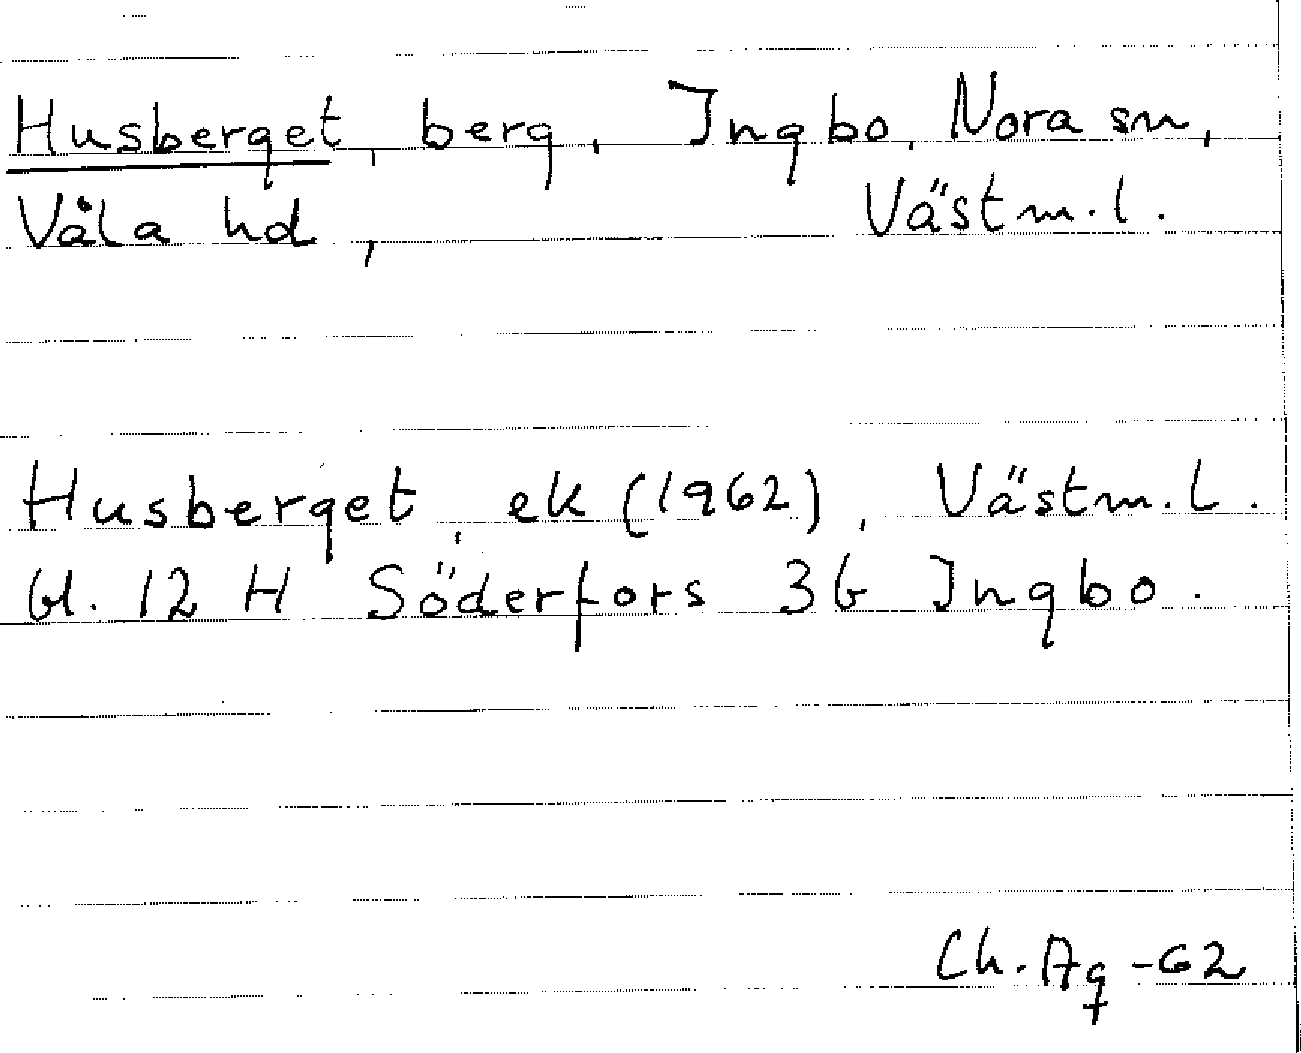 Husberget, berg, Ingbo, Nora sn,
Våla hd, Västm.l.
Husberget, ek (1962), Västm.l.
bl. 12 H Söderfors 3b Ingbo.
Ch. Ag -62